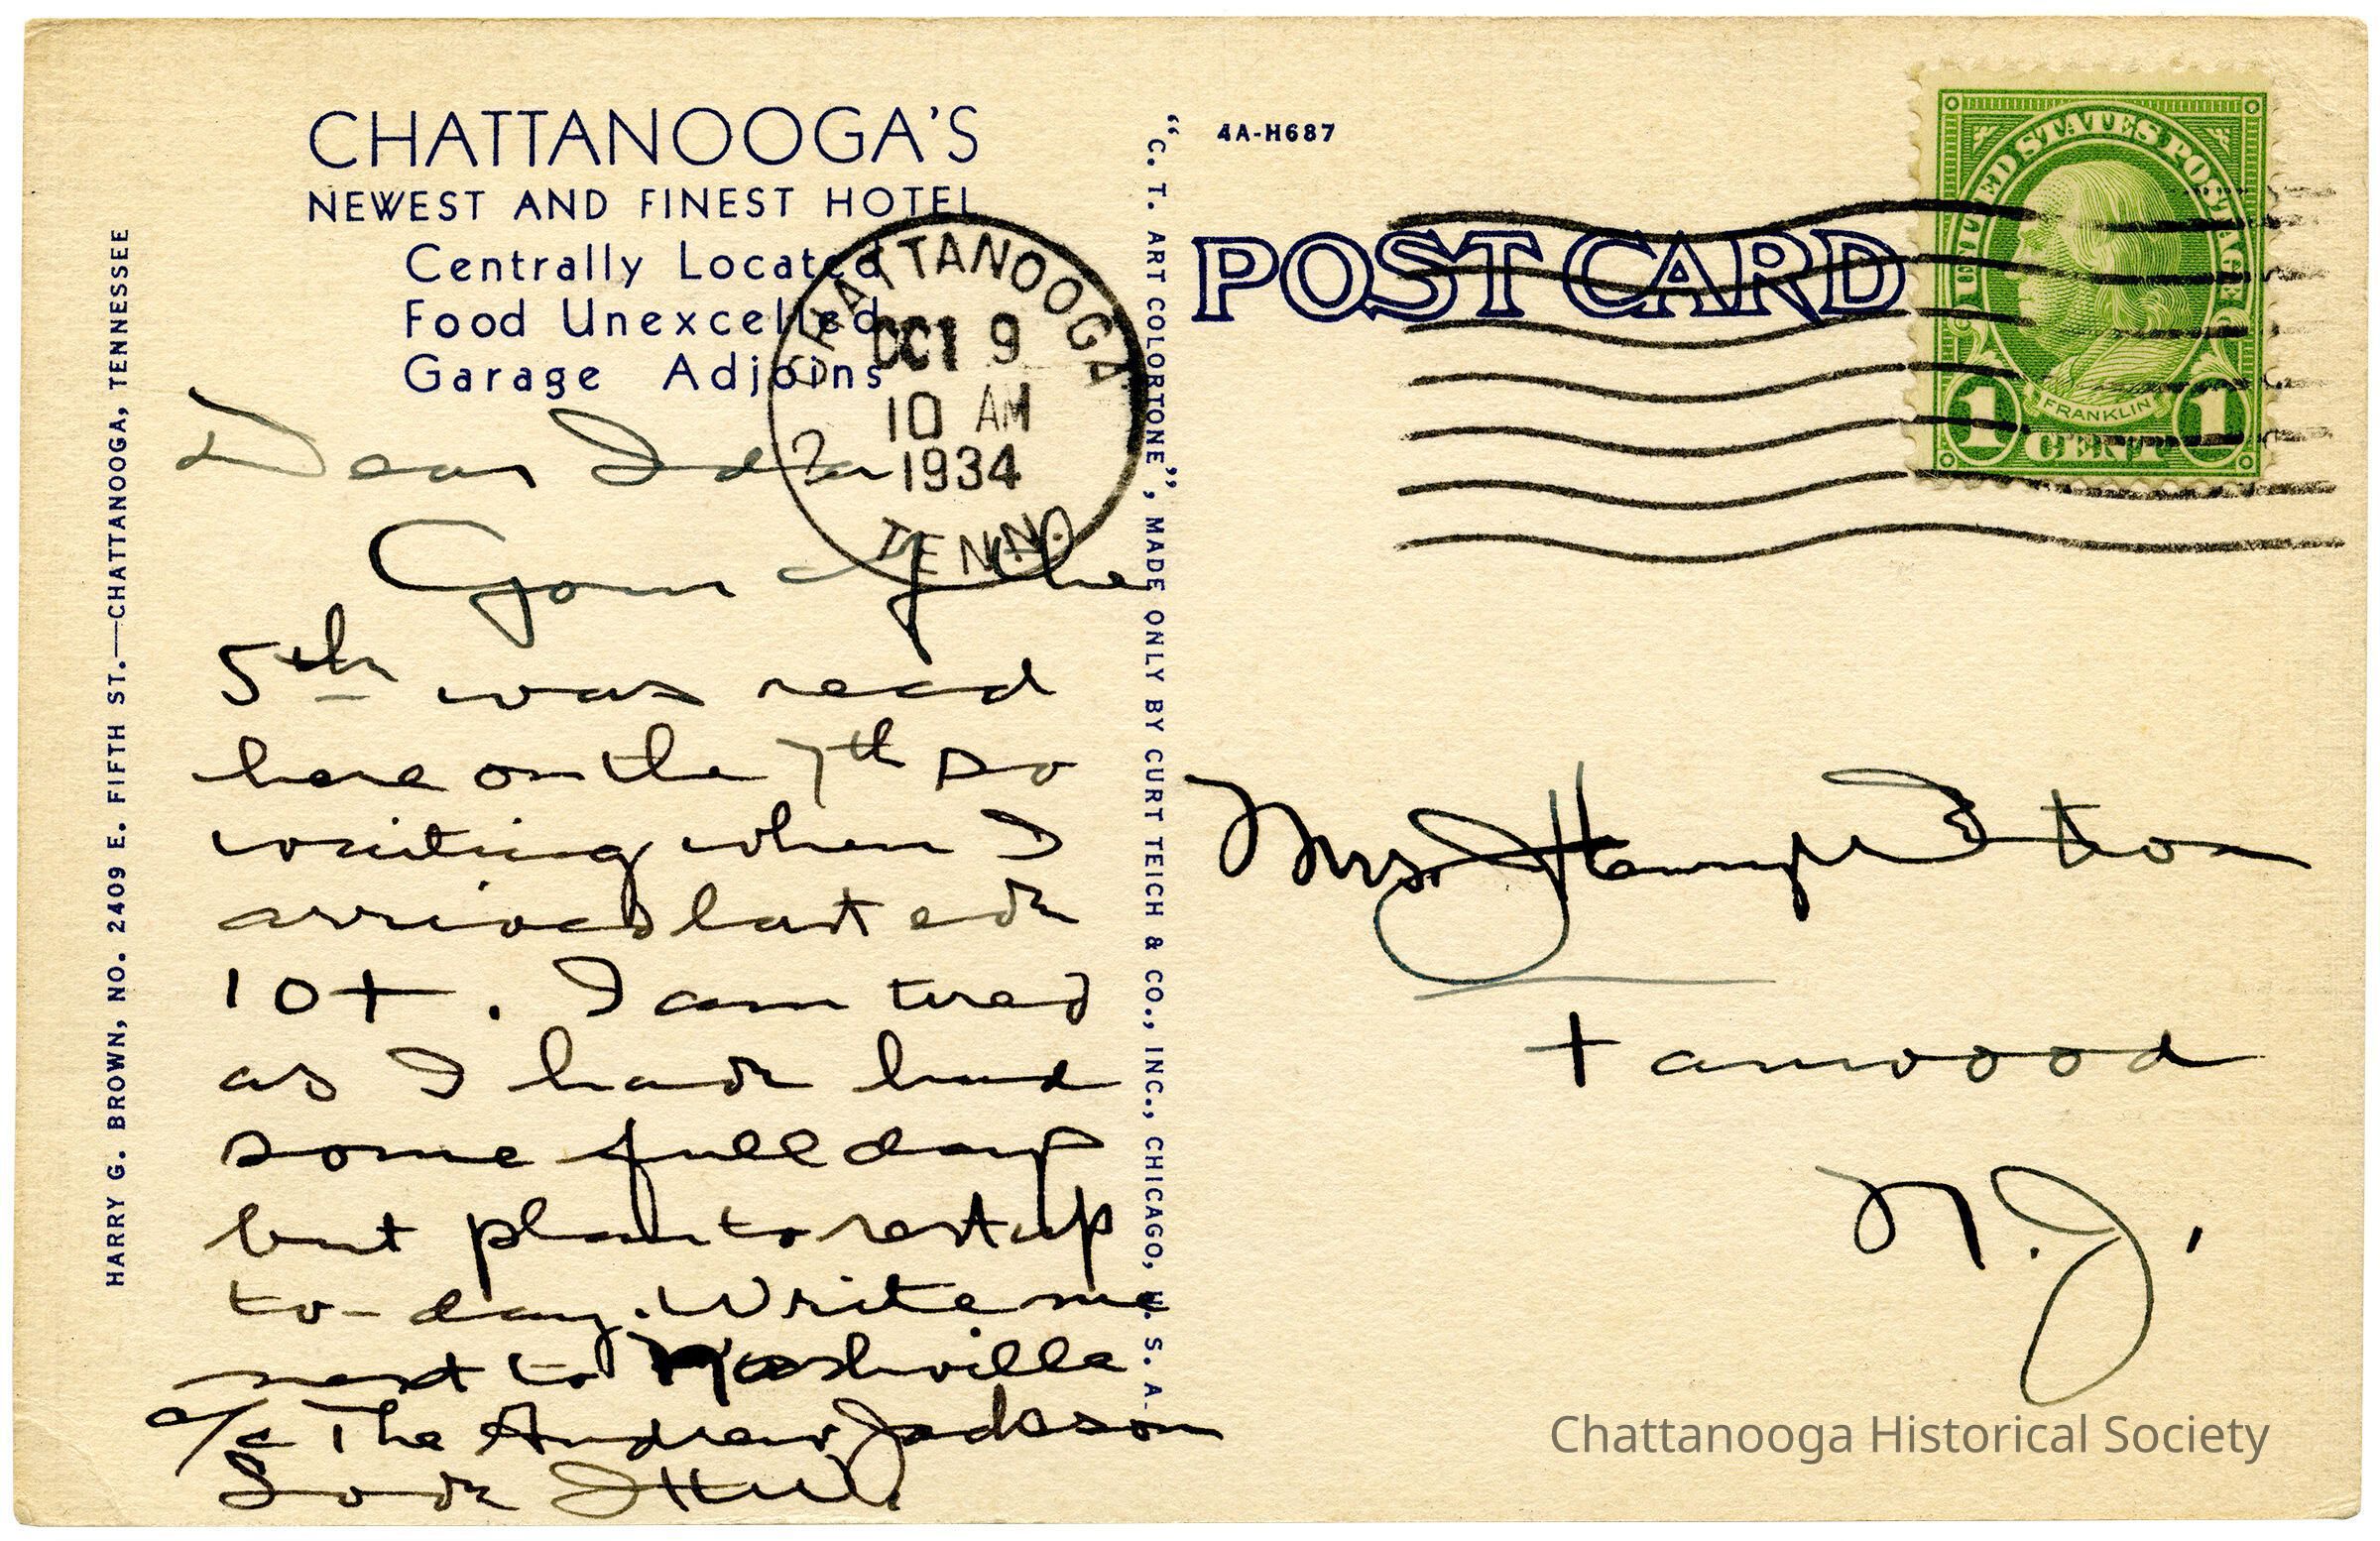 CHATTANOOGA'S
NEWEST AND FINEST HOTEL
Centrally Located
Food Unexcelled
Garage Adjoins
HARRY G. BROWN, NO. 2409 E. FIFTH ST.—CHATTANOOGA, TENNESSEE
CHATTANOOGA
OCT 9
10 AM
1934
TENN.
2
Dear Ida
Your of the
5th was read
here on the 7th so
waiting when I
arrived last eve
10+. I am tired
as I have had
some full days
but plan to rest up
to-day. Write me
next to Nashville
c/o The Andrew Jackson
Love
"C. T. ART COLORTONE", MADE ONLY BY CURT TEICH & CO., INC., CHICAGO, U. S. A.
4A-H687
POST CARD
UNITED STATES POSTAGE
FRANKLIN
1 CENT 1
Mrs. Hampton
Fanwood
N.J.
Chattanooga Historical Society